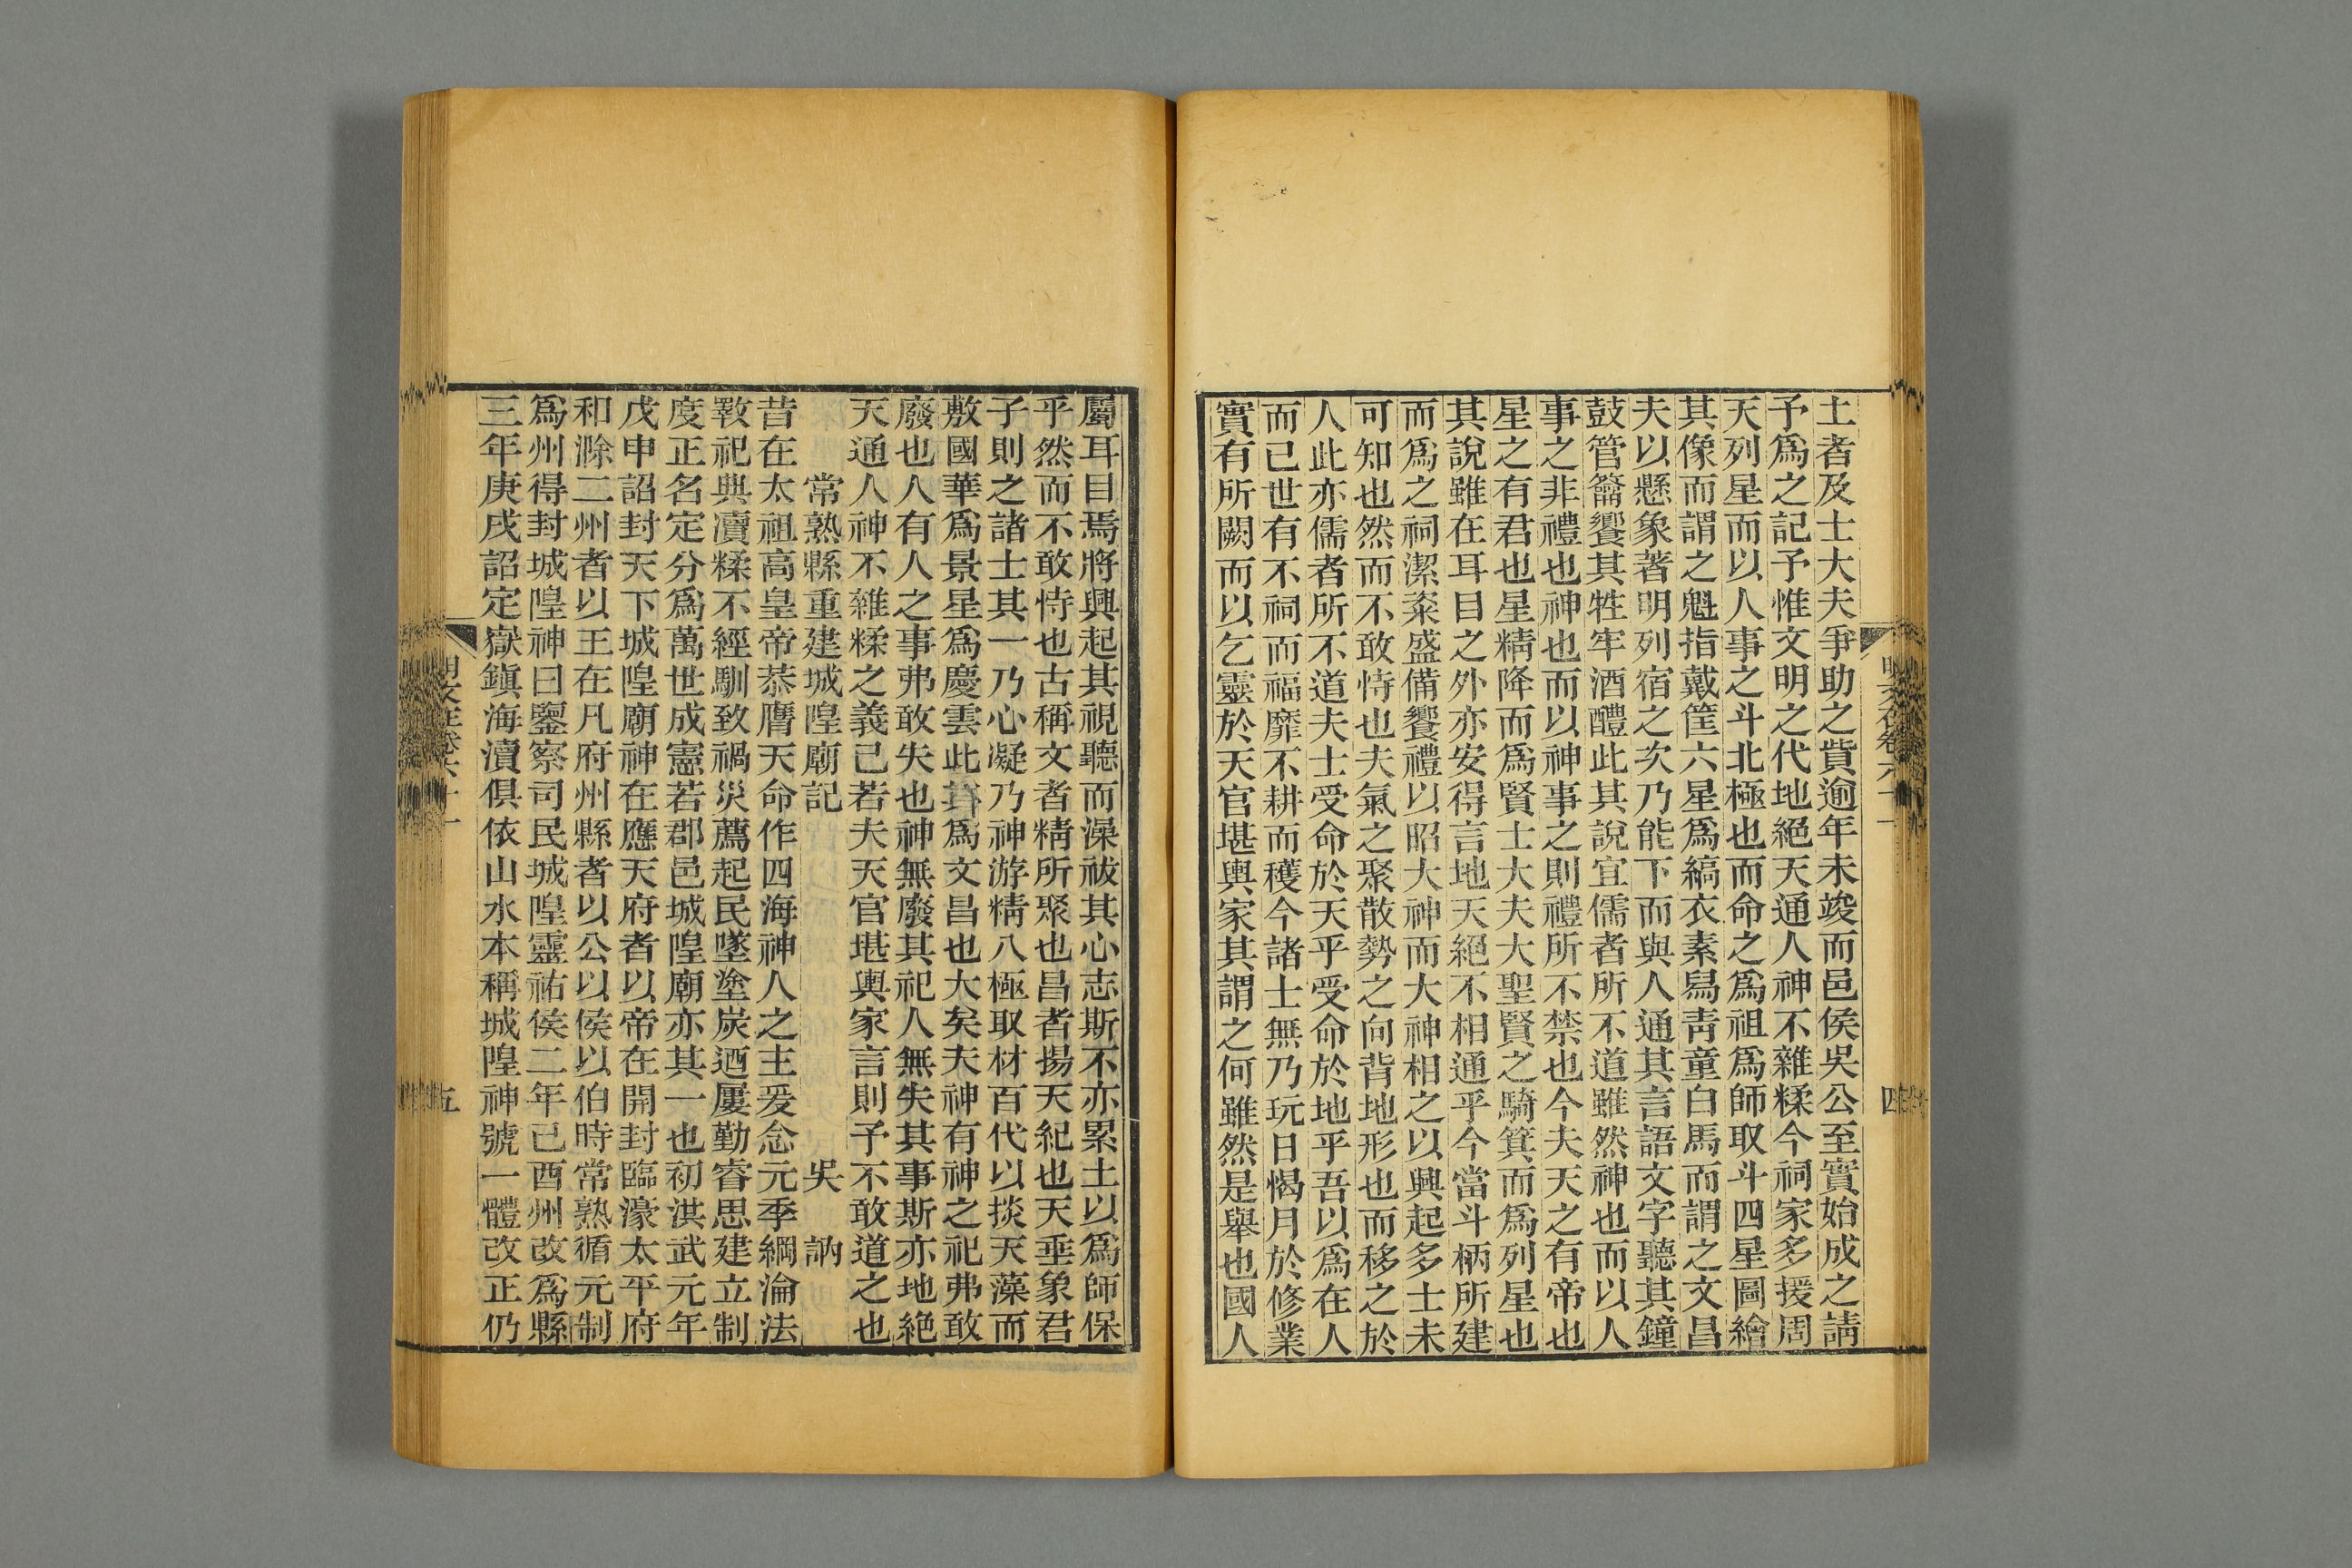 土者及士大夫爭助之貲逾年未竣而邑侯吳公至實始成之請
予爲之記予惟文明之代地絕天通人神不雜糅今祠家多援周
天列星而以人事之斗北極也而命之爲祖爲師取斗四星圖繪
其像而謂之魁指戴筐六星爲縞衣素舄靑童白馬而謂之文昌
夫以懸象著明列宿之次乃能下而與人通其言語文字聽其鐘
鼓管籥饗其牲牢酒醴此其說宜儒者所不道雖然神也而以人
事之非禮也神也而以神事之則禮所不禁也今夫天之有帝也
星之有君也星精降而爲賢士大夫大聖賢之騎箕而爲列星也
其說雖在耳目之外亦安得言地天絕不相通乎今當斗柄所建
而爲之祠潔粢盛備饗禮以昭大神而大神相之以興起多士未
可知也然而不敢恃也夫氣之聚散勢之向背地形也而移之於
人此亦儒者所不道夫士受命於天乎受命於地乎吾以爲在人
而已世有不祠而福靡不耕而穫今諸士無乃玩日愒月於修業
實有所闕而以乞靈於天官堪輿家其謂之何雖然是舉也國人
四
屬耳目焉將興起其視聽而澡祓其心志斯不亦累土以爲師保
乎然而不敢恃也古稱文者精所聚也昌者揚天紀也天垂象君
子則之諸士其一乃心凝乃神游精八極取材百代以掞天藻而
敷國華爲景星爲慶雲此其爲文昌也大矣夫神有神之祀弗敢
廢也人有人之事弗敢失也神無廢其祀人無失其事斯亦地絕
天通人神不雜糅之義已若夫天官堪輿家言則予不敢道之也
常熟縣重建城隍廟記 吳訥
昔在太祖高皇帝恭膺天命作四海神人之主爰念元季綱淪法
斁祀典瀆糅不經馴致禍災薦起民墜塗炭迺屢勤睿思建立制
度正名定分爲萬世成憲若郡邑城隍廟亦其一也初洪武元年
戊申詔封天下城隍廟神在應天府者以帝在開封臨濠太平府
和滁二州者以王在凡府州縣者以公以侯以伯時常熟循元制
爲州得封城隍神曰鑒察司民城隍靈祐侯二年己酉州改爲縣
三年庚戌詔定嶽鎭海瀆俱依山水本稱城隍神號一體改正仍
五